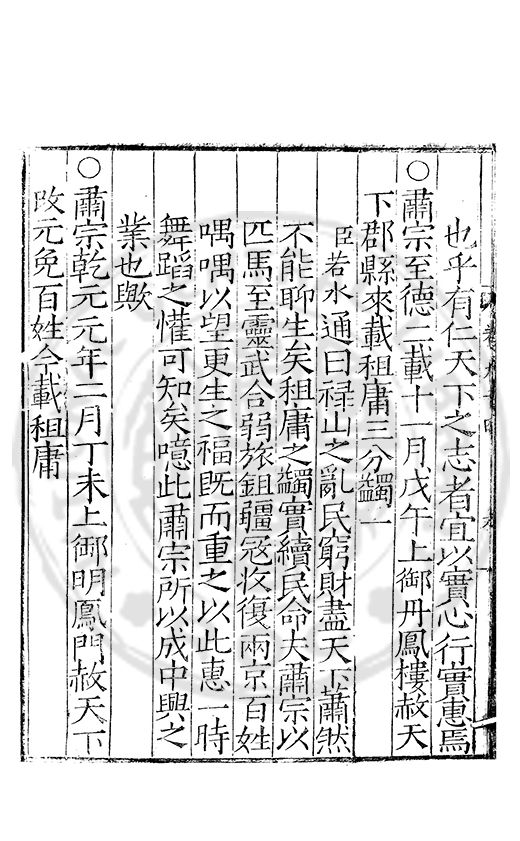 也乎有仁天下之志者宜以實心行實惠焉
○肅宗至德二載十一月戊午上御丹鳳樓赦天
下郡縣來載租庸三分蠲一
臣若水通曰祿山之亂民窮財盡天下蕭然
不能聊生矣租庸之蠲實續民命夫肅宗以
匹馬至靈武合弱旅鉏彊寇收復兩京百姓
喁喁以望更生之福旣而重之以此惠一時
舞蹈之懽可知矣噫此肅宗所以成中興之
業也歟
○肅宗乾元元年二月丁未上御明鳳門赦天下
改元免百姓今載租庸